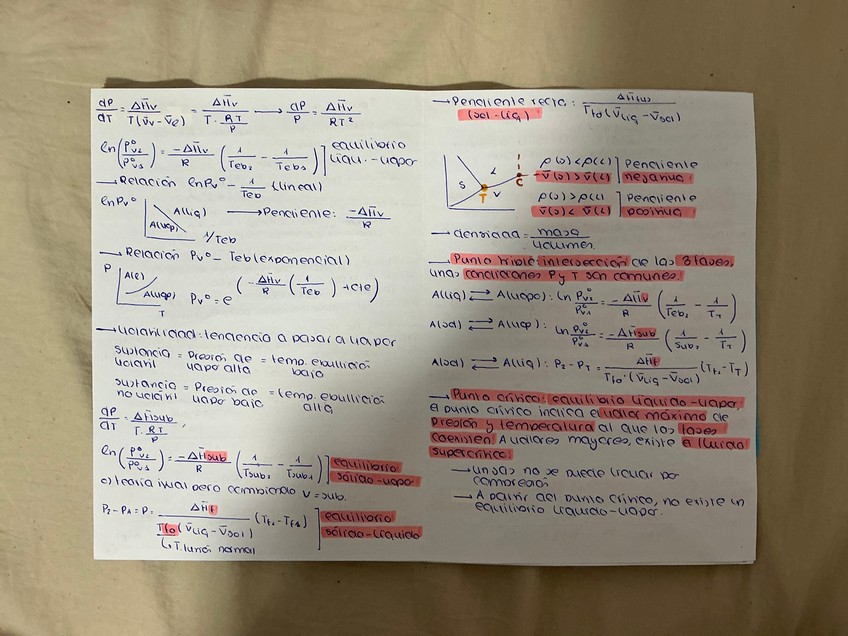 dP/dT = ΔH̄v / T(V̄v - V̄l) = ΔH̄v / T · RT/P → dP/P = ΔH̄v / RT²
ln(P°v2 / P°v1) = -ΔH̄v / R (1/Teb2 - 1/Teb1) ] equilibrio líqui.-vapor
→ Relación lnPv° - 1/Teb (lineal)
lnPv°
A(liq)
A(vap)
1/Teb
→ Pendiente: -ΔH̄v / R
→ Relación Pv° - Teb (exponencial)
P
A(l)
A(vap)
T
Pv° = e^(-ΔH̄v/R (1/Teb) + cte)
→ Volatilidad: tendencia a pasar a vapor
sustancia volátil = Presión de vapor alta = temp. ebullición baja
sustancia no volátil = Presión de vapor baja = temp. ebullición alta
dP/dT = ΔH̄sub / T · RT/P
ln(P°v2 / P°v1) = -ΔH̄sub / R (1/Tsub2 - 1/Tsub1) ] equilibrio sólido-vapor
igual pero cambiando v = sub.
P2 - P1 = P = ΔH̄f / Tfo (V̄liq - V̄sol) (Tf2 - Tf1) ] equilibrio sólido-líquido
↳ T. fusión normal
→ Pendiente recta (sol-liq) : ΔH̄fus / Tfo (V̄liq - V̄sol)
S
L
V
T
C
ρ(s) < ρ(l)
V̄(s) > V̄(l)
] Pendiente negativa
ρ(s) > ρ(l)
V̄(s) < V̄(l)
] Pendiente positiva
→ densidad = masa / volumen
→ Punto triple: intersección de las 3 fases,
unas condiciones P y T son comunes.
A(liq) ⇄ A(vapo) : ln Pv2/Pv1 = -ΔH̄v / R (1/Teb2 - 1/TT)
A(sol) ⇄ A(vap) : ln Pv2/Pv1 = -ΔH̄sub / R (1/sub2 - 1/TT)
A(sol) ⇄ A(liq) : P2 - PT = ΔH̄f / Tfo · (V̄liq - V̄sol) (Tf2 - TT)
→ Punto crítico: equilibrio líquido-vapor,
el punto crítico indica el valor máximo de
presión y temperatura al que las fases
coexisten. A valores mayores, existe el fluido
supercrítico.
→ Un gas no se puede licuar por
compresión
→ A partir del punto crítico, no existe un
equilibrio líquido-vapor.